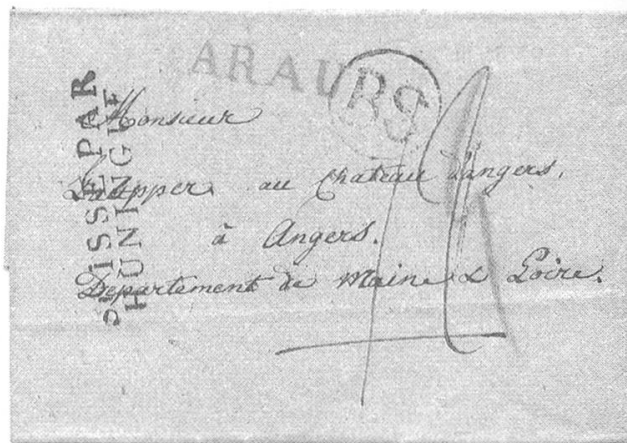 ARAU
RS
SUISSE PAR
HUNINGUE
Monsieur
au Chateau d'angers.
à Angers.
Departement de Maine & Loire.